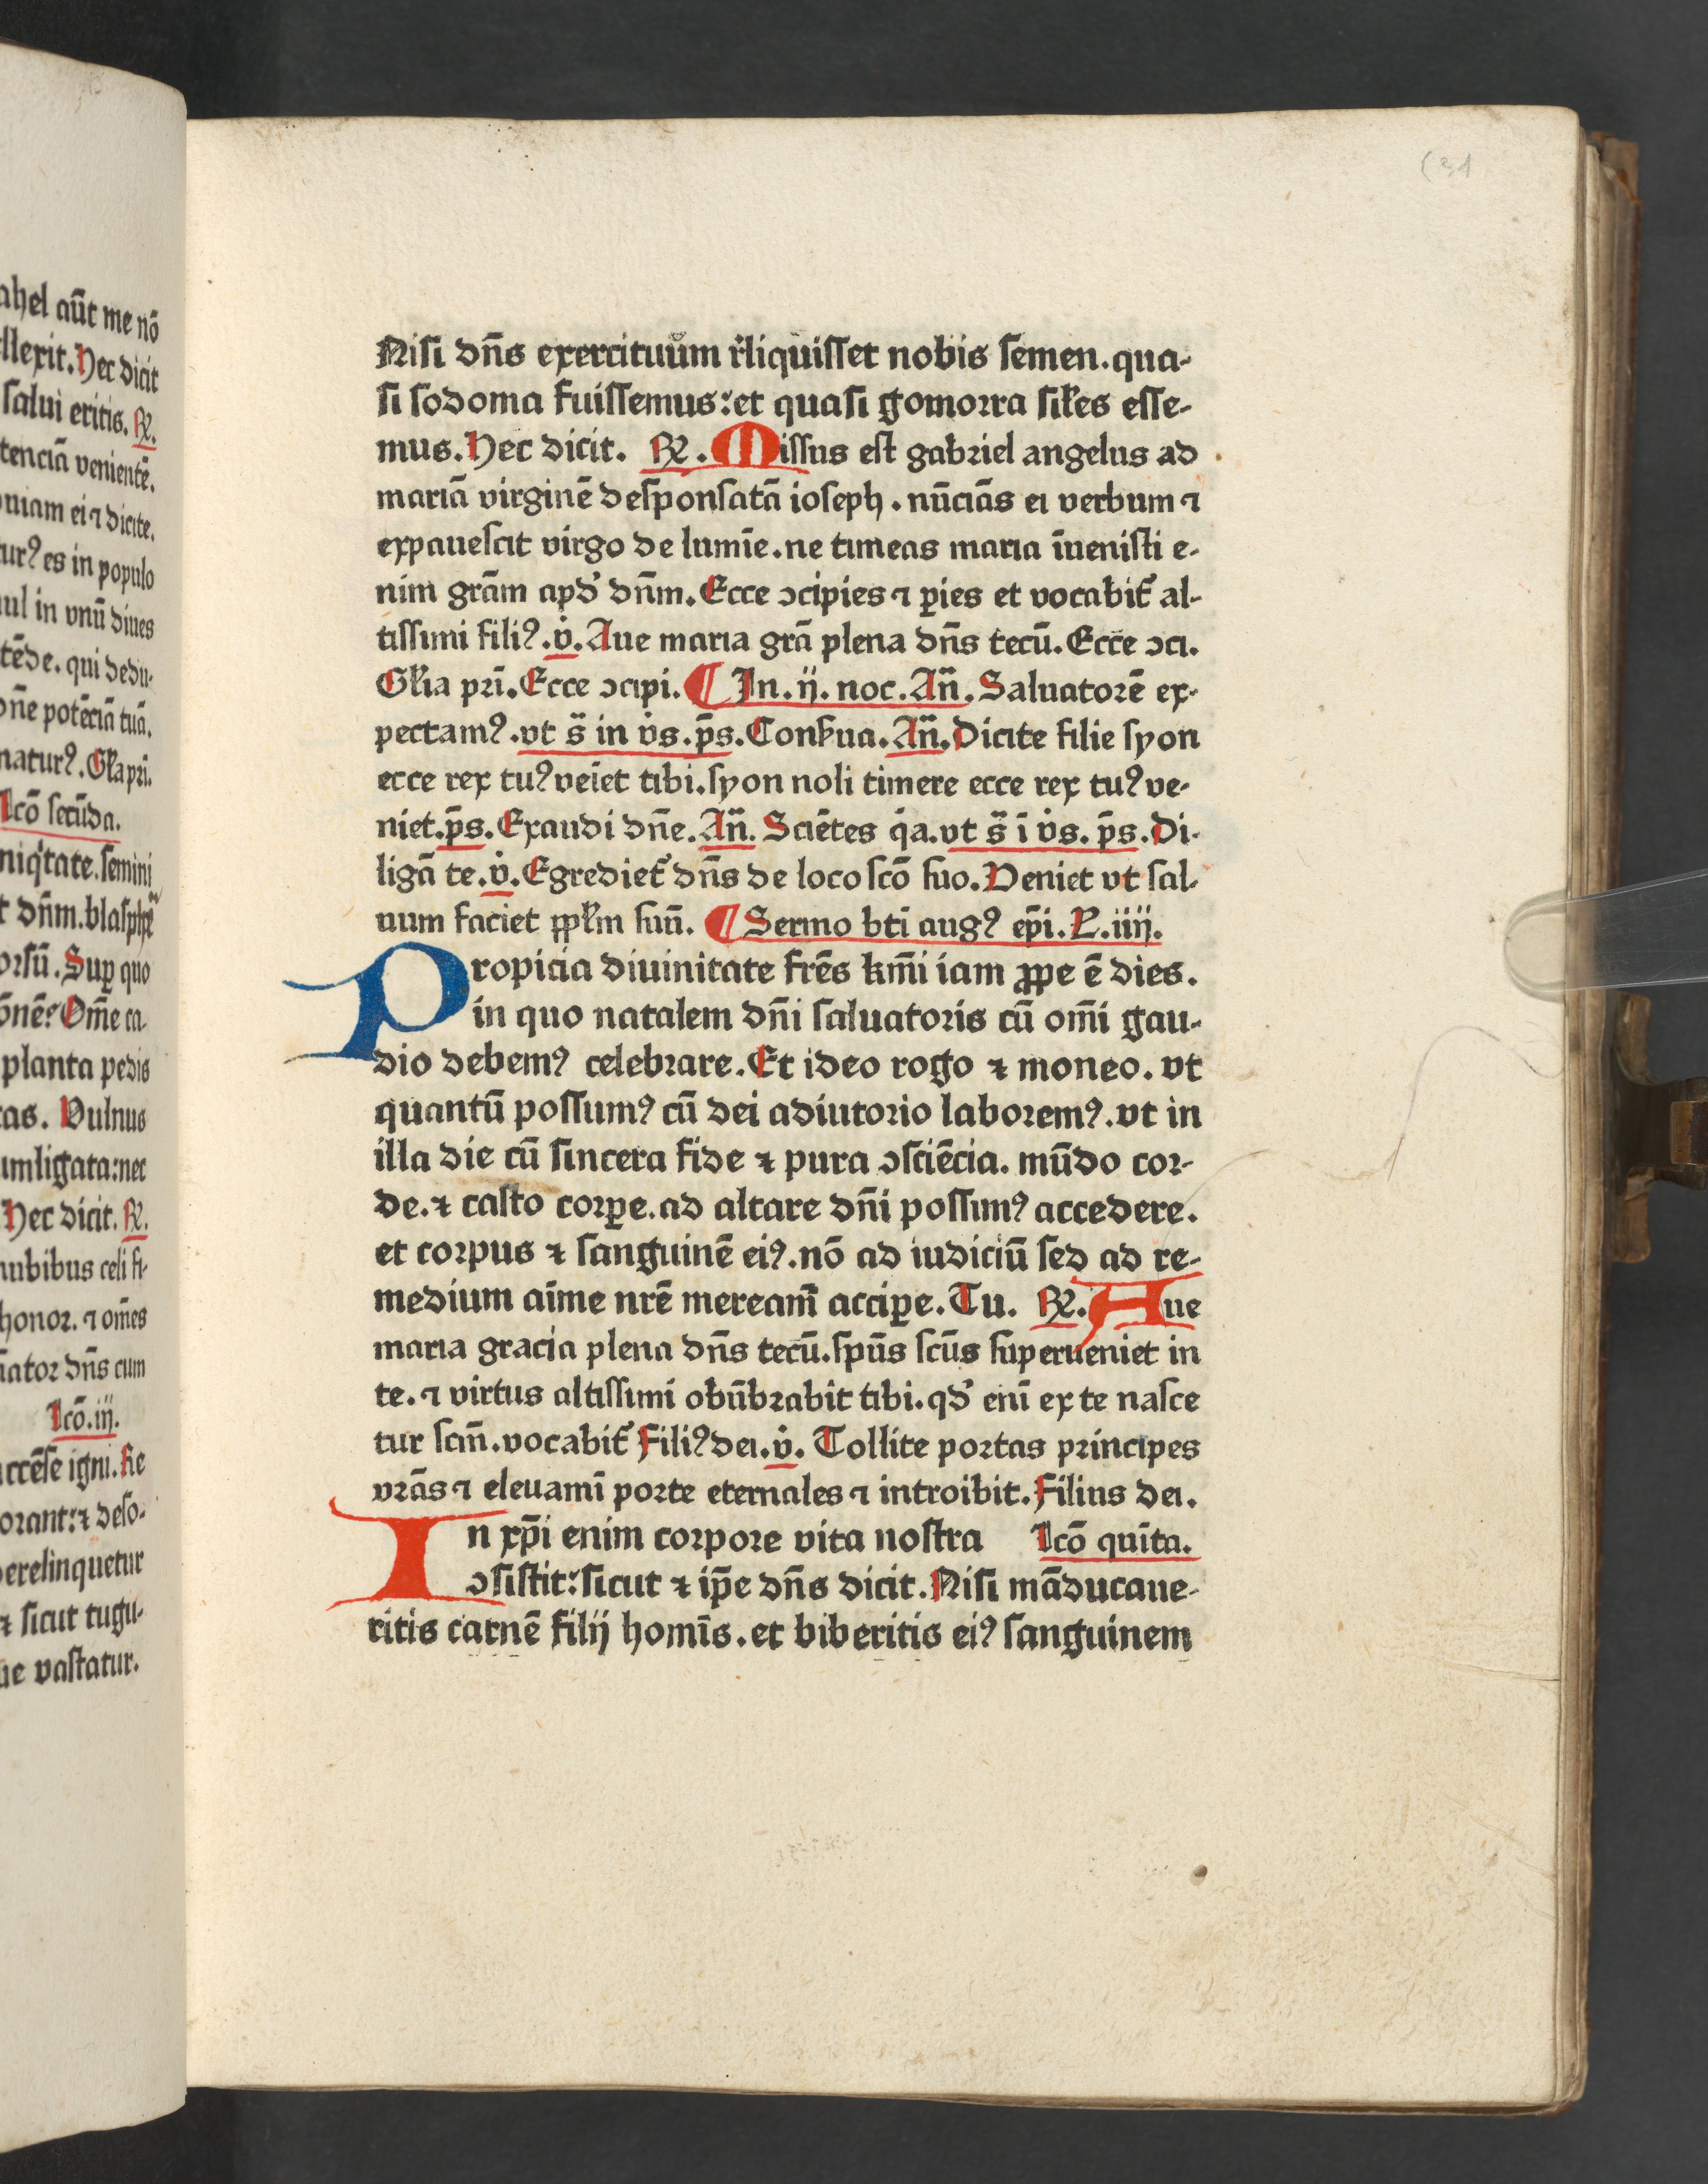 ahel aūt me nō
llexit. Hec dicit
salui eritis. ℟.
tenciā venientē.
niam ei ⁊ dicite.
turꝰ es in populo
ul in vnū diues
tēde. qui dedu-
dñe potēciā tuā.
naturꝰ. Gl'ia pri.
Lcō secūda.
niqtate. semini
t dñm. blasphe
orsū. Sup quo
ōnē: Om̄e ca
planta pedis
tas. Vulnus
umligata: nec
Hec dicit. ℟.
nubibus celi fi-
honor. ⁊ om̄es
nator dñs cum
Lcō. iij.
ccēse igni. Re
orant: ⁊ deso-
erelinquetur
⁊ sicut tugu-
ue vastatur.
Nisi dñs exercituum r̓liquisset nobis semen. qua-
si sodoma fuissemus: et quasi gomorra sil̓es esse-
mus. Hec dicit. ℟. Missus est gabriel angelus ad
mariā virginē desponsatā ioseph. nūciās ei verbum ⁊
expauescit virgo de lumīe. ne timeas maria īuenisti e-
nim grām apd̓ dñm. Ecce ↄcipies ⁊ ꝑies et vocabit̓ al-
tissimi filiꝰ. v̓. Aue maria grā plena dñs tecū. Ecce ↄci.
Gl̓ia pri̅. Ecce ↄcipi. ¶ In. ij. noc. Añ. Saluatorē ex-
pectamꝰ. vt s̄ in v̓s. p̄s. Conſ̓ua. Añ. Dicite filie syon
ecce rex tuꝰ veīet tibi. syon noli timere ecce rex tuꝰ ve-
niet. p̄s. Exaudi dñe. Añ. Sciētes q̓a. vt s̄ ī v̓s. p̄s. Di-
ligā te. v̓. Egrediet̓ dñs de loco scō suo. Veniet vt sal-
uum faciet pp̓lm suū. ¶ Sermo bti̅ augꝰ ep̄i. L. iiij.
Propicia diuinitate frēs km̄i iam ꝓpe ē dies.
in quo natalem dñi saluatoris cū om̄i gau-
dio debemꝰ celebrare. Et ideo rogo ⁊ moneo. vt
quantū possumꝰ cū dei adiutorio laboremꝰ. vt in
illa die cū sincera fide ⁊ pura ↄsciēcia. mūdo cor-
de. ⁊ casto corꝑe. ad altare dñi possimꝰ accedere.
et corpus ⁊ sanguinē eiꝰ. nō ad iudiciū sed ad re-
medium aīme nrē meream̓ acciꝑe. Tu. ℟. Aue
maria gracia plena dñs tecū. spūs scūs superueniet in
te. ⁊ virtus altissimi obūbrabit tibi. qd̓ enī ex te nasce
tur scm̄. vocabit̓ Filiꝰ dei. v̓. Tollite portas principes
vrās ⁊ eleuamī porte eternales ⁊ introibit. Filius dei.
In xp̄i enim corpore vita nostra Lcō quīta.
ↄsistit: sicut ⁊ ip̄e dñs dicit. Nisi māducaue-
ritis carnē filij homīs. et biberitis eiꝰ sanguinem